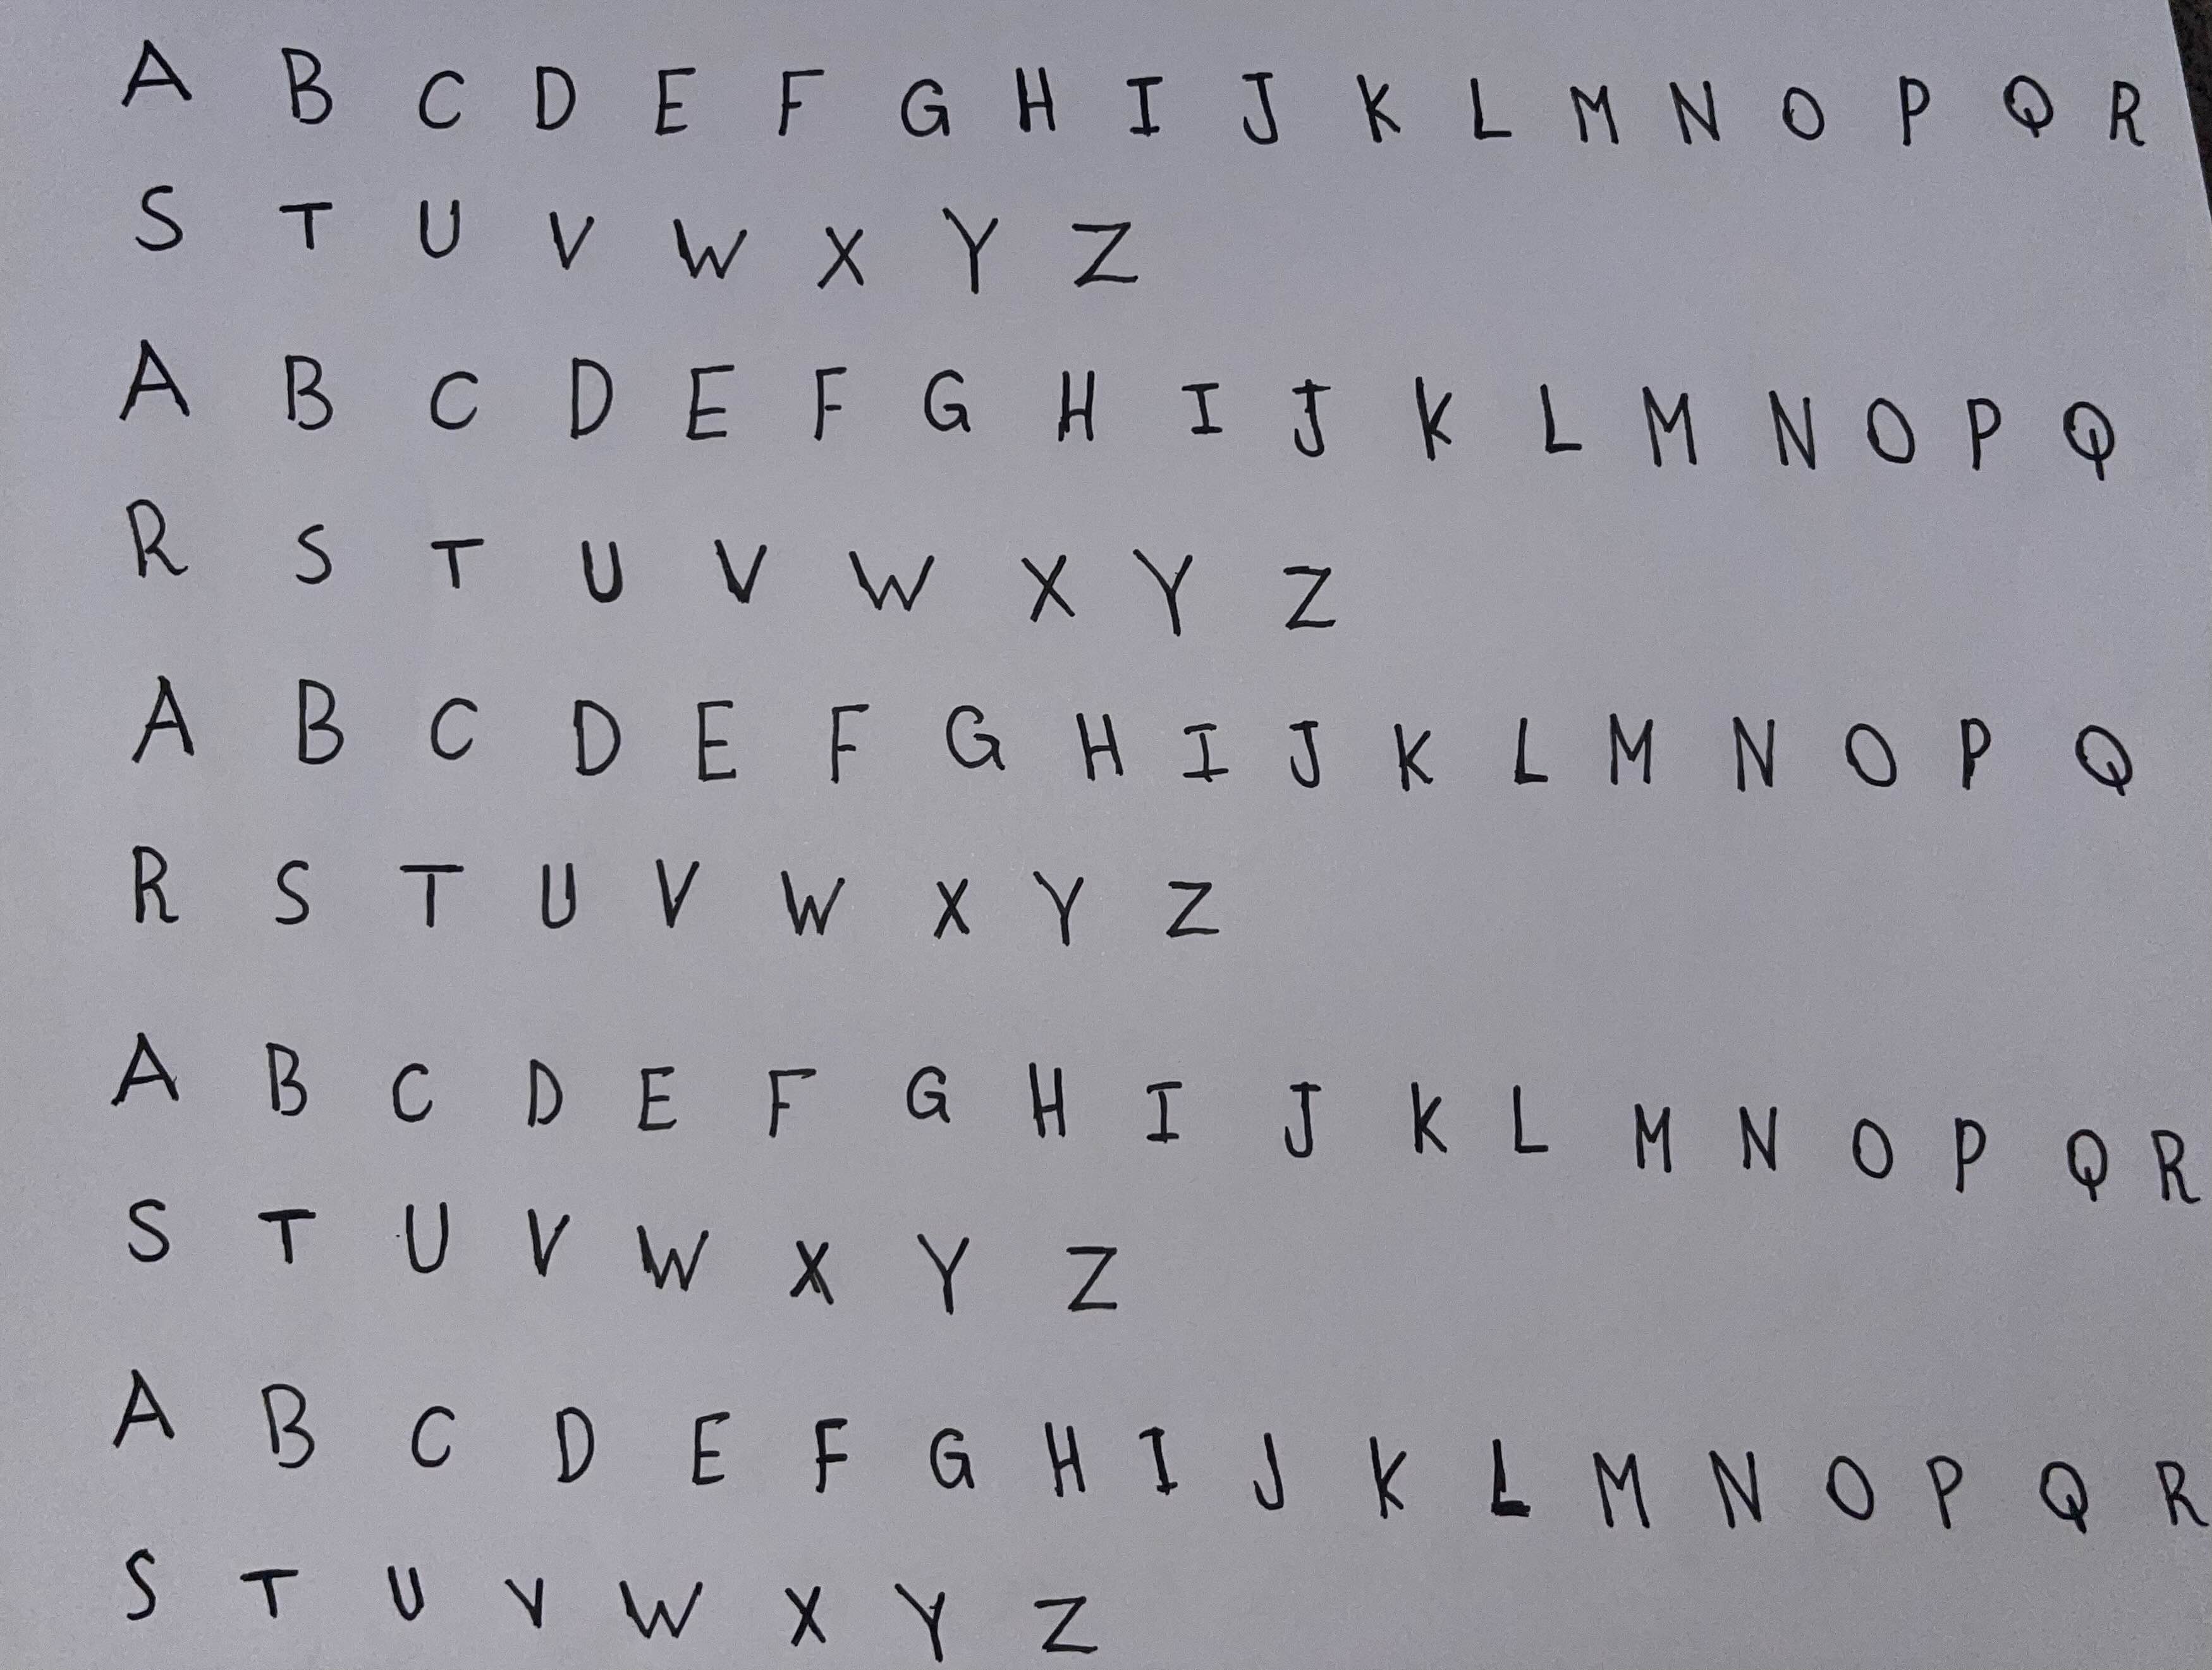 A B C D E F G H I J K L M N O P Q R
S T U V W X Y Z
A B C D E F G H I J K L M N O P Q
R S T U V W X Y Z
A B C D E F G H I J K L M N O P Q
R S T U V W X Y Z
A B C D E F G H I J K L M N O P Q R
S T U V W X Y Z
A B C D E F G H I J K L M N O P Q R
S T U V W X Y Z